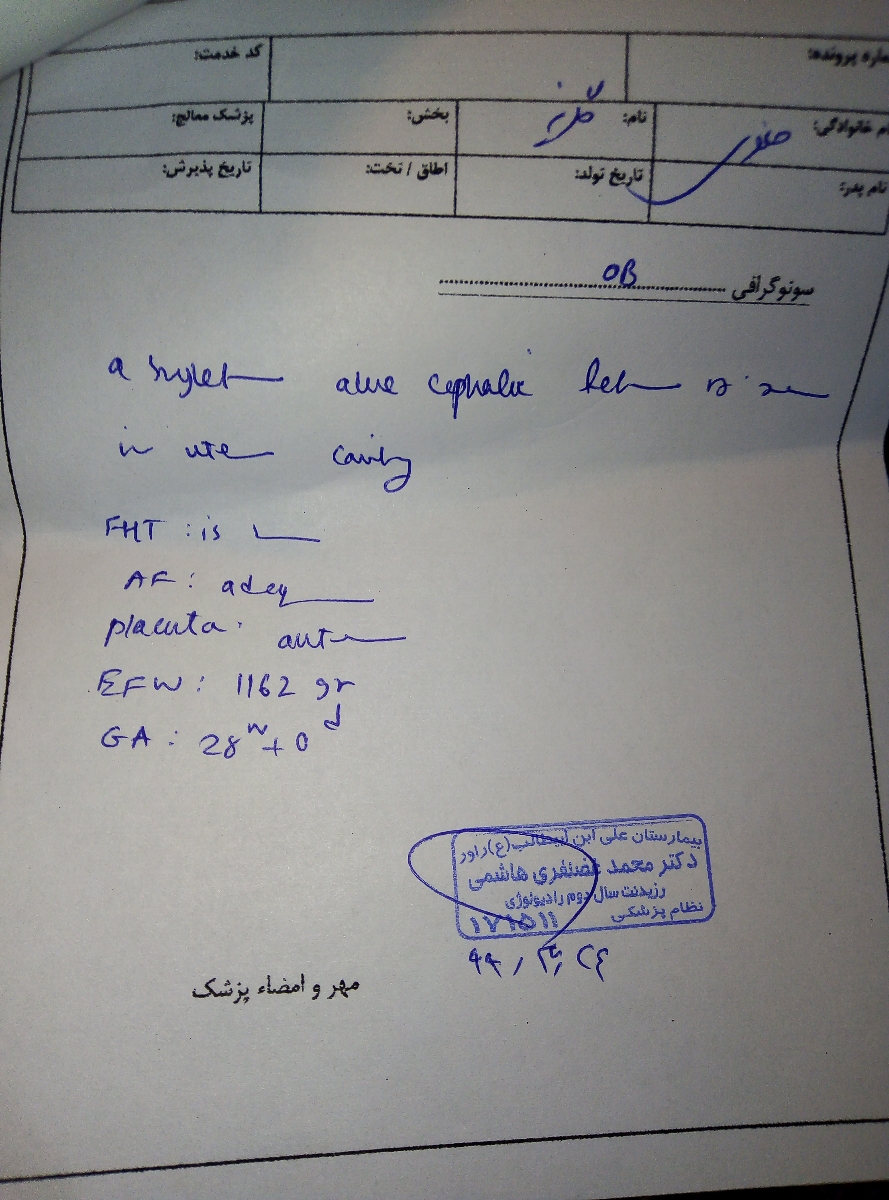 شماره پرونده: کد خدمت:
نام خانوادگی: نام: بخش: پزشک معالج:
نام پدر: تاریخ تولد: اطاق / تخت: تاریخ پذیرش:
سونوگرافی OB
a alive cephalic
in cavity
FHT : is
AF : adeq
placenta : ant
EFW : 1162 gr
GA : 28 w + 0 d
بیمارستان علی ابن ابیطالب(ع)راور
دکتر محمد غضنفری هاشمی
رزیدنت سال دوم رادیولوژی
نظام پزشکی ۱۷۱۵۱۱
مهر و امضاء پزشک